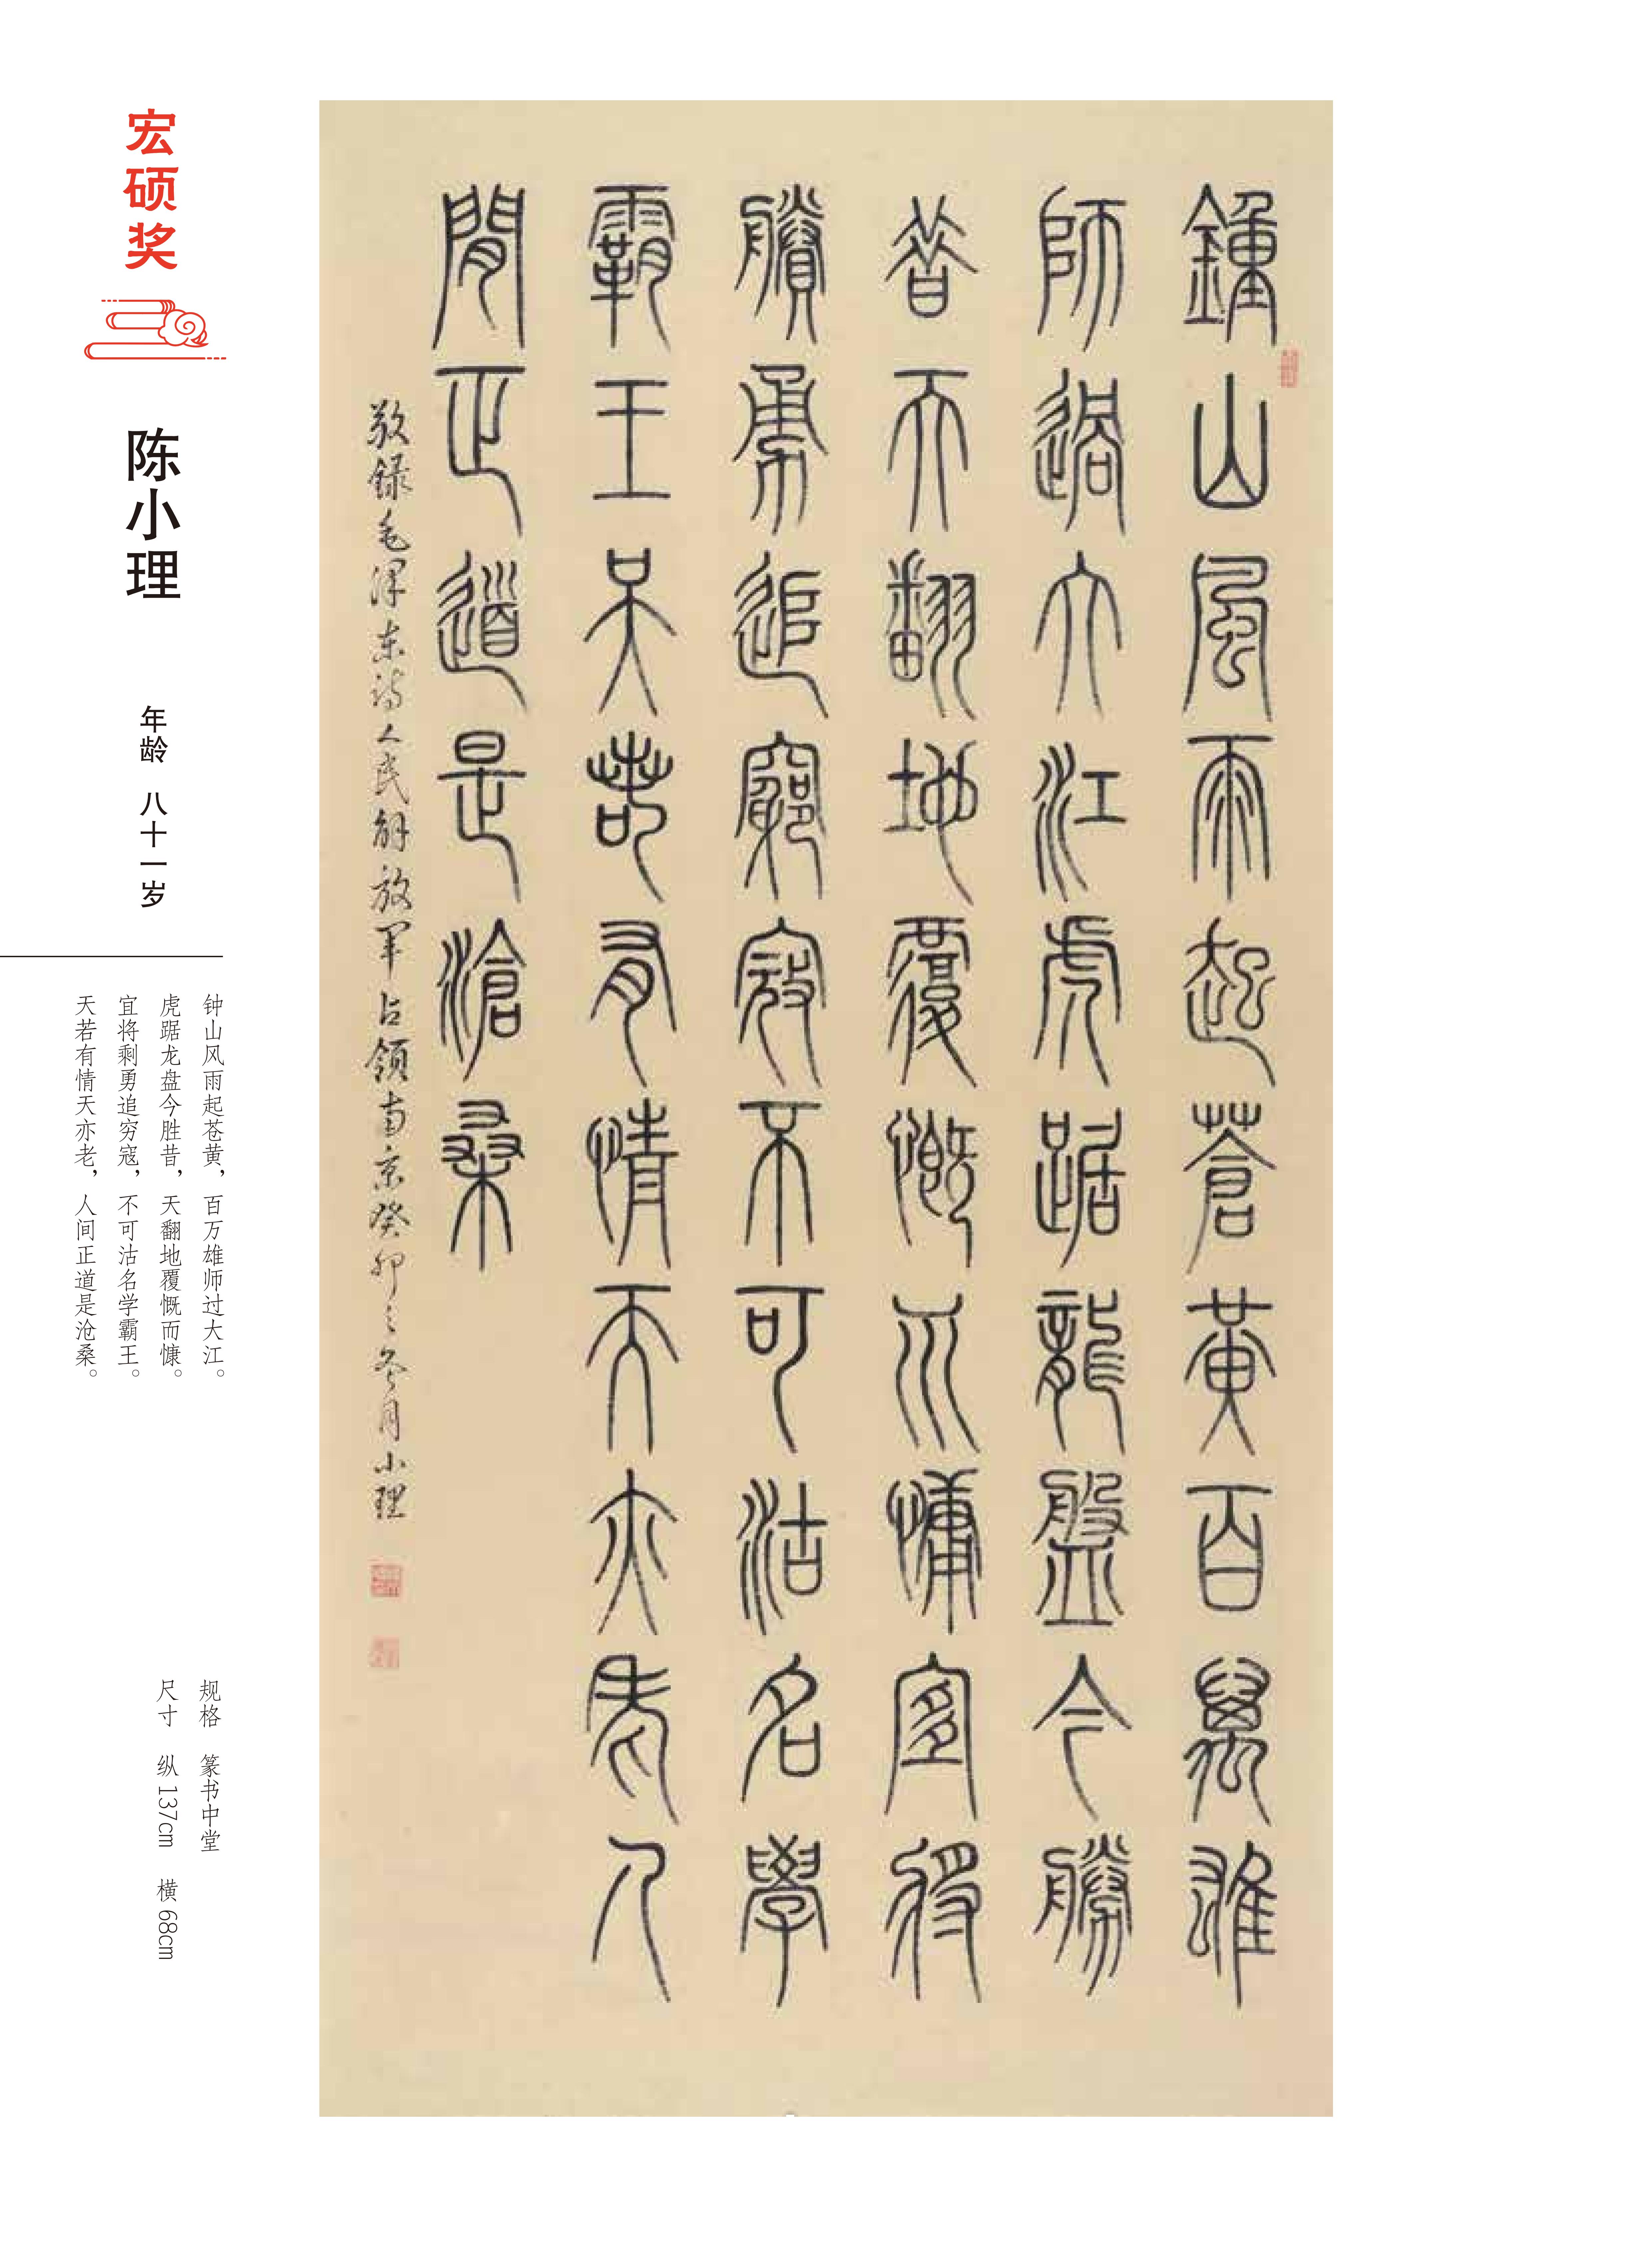 宏硕奖
陈小理
年龄 八十一岁
钟山风雨起苍黄，百万雄师过大江。
虎踞龙盘今胜昔，天翻地覆慨而慷。
宜将剩勇追穷寇，不可沽名学霸王。
天若有情天亦老，人间正道是沧桑。
规格 篆书中堂
尺寸 纵 137cm 横 68cm
鍾山風雨起蒼黃百萬雄
師過大江虎踞龍盤今勝
昔天翻地覆慨而慷宜將
賸勇追窮寇不可沽名學
霸王天若有情天亦老人
間正道是滄桑
敬録毛泽东诗人民解放军占领南京癸卯之冬月小理